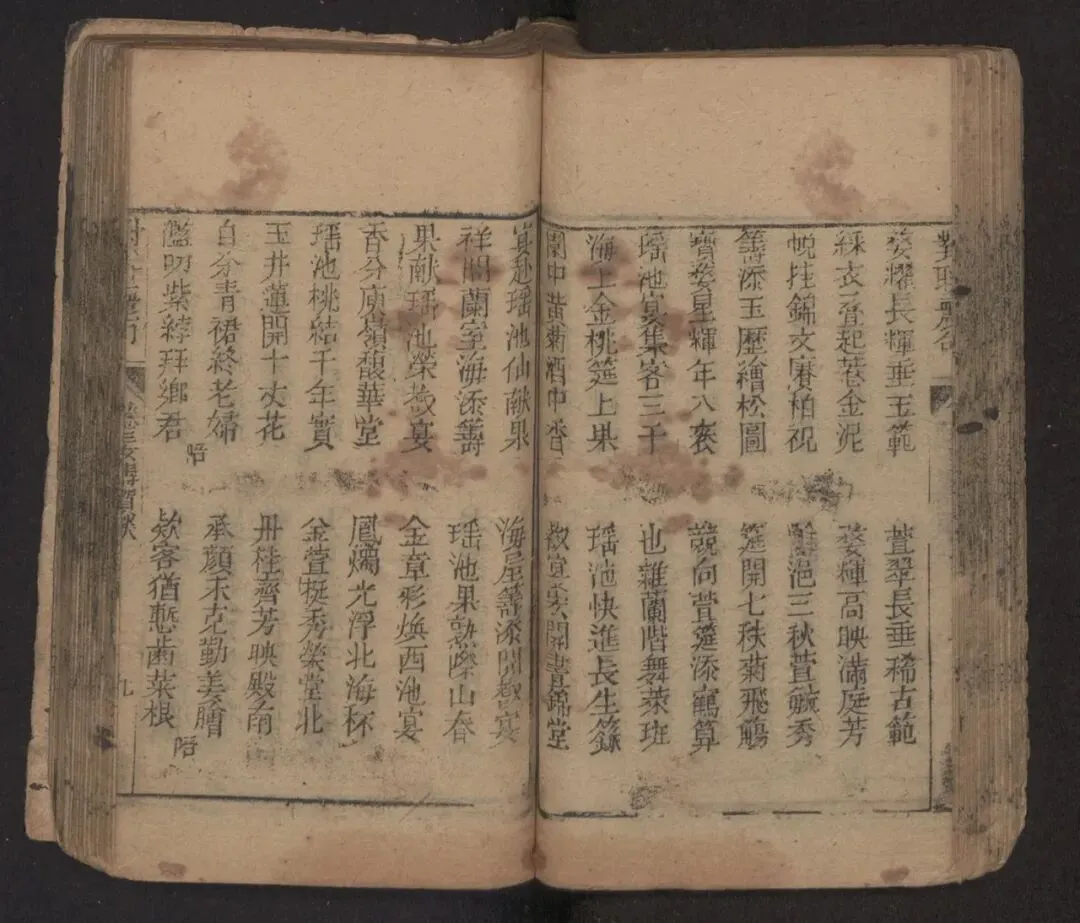 對聯彙
婺耀長輝垂玉範
萱翠長垂稀古範
綵衣
起
金泥
婺輝高映滿庭芳
帨挂錦文賡柏祝
浥三秋萱毓秀
籌添玉歷繪松圖
筵開七秩菊飛觴
寶婺星輝年八袠
競向萱筵添鶴算
瑶池宴集客三千
也雜蘭階舞萊班
海上金桃筵上果
瑶池快進長生籙
蘭中黄菊酒中香
開晝錦堂
宴赴瑶池仙献果
海屋籌添開
宴
祥開蘭室海添籌
瑶池果熟
山春
果献瑶池榮
宴
金章彩焕西池宴
香分庾嶺馥華堂
鳳燭光浮北海杯
瑶池桃結千年實
金萱挺秀榮堂北
玉井蓮開十丈花
丹桂齊芳映殿南
自分青裙終老婦
承顔未克勤羮膾
叨紫綍拜鄉君
欵客猶慙齒菜根
九